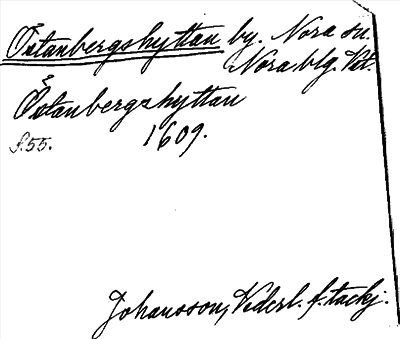 Östanbergshyttan by. Nora sn.
Nora blg. Vst.
Östanbergshyttan
s.55. 1609.
Johansson, Vederl. f. tackj.